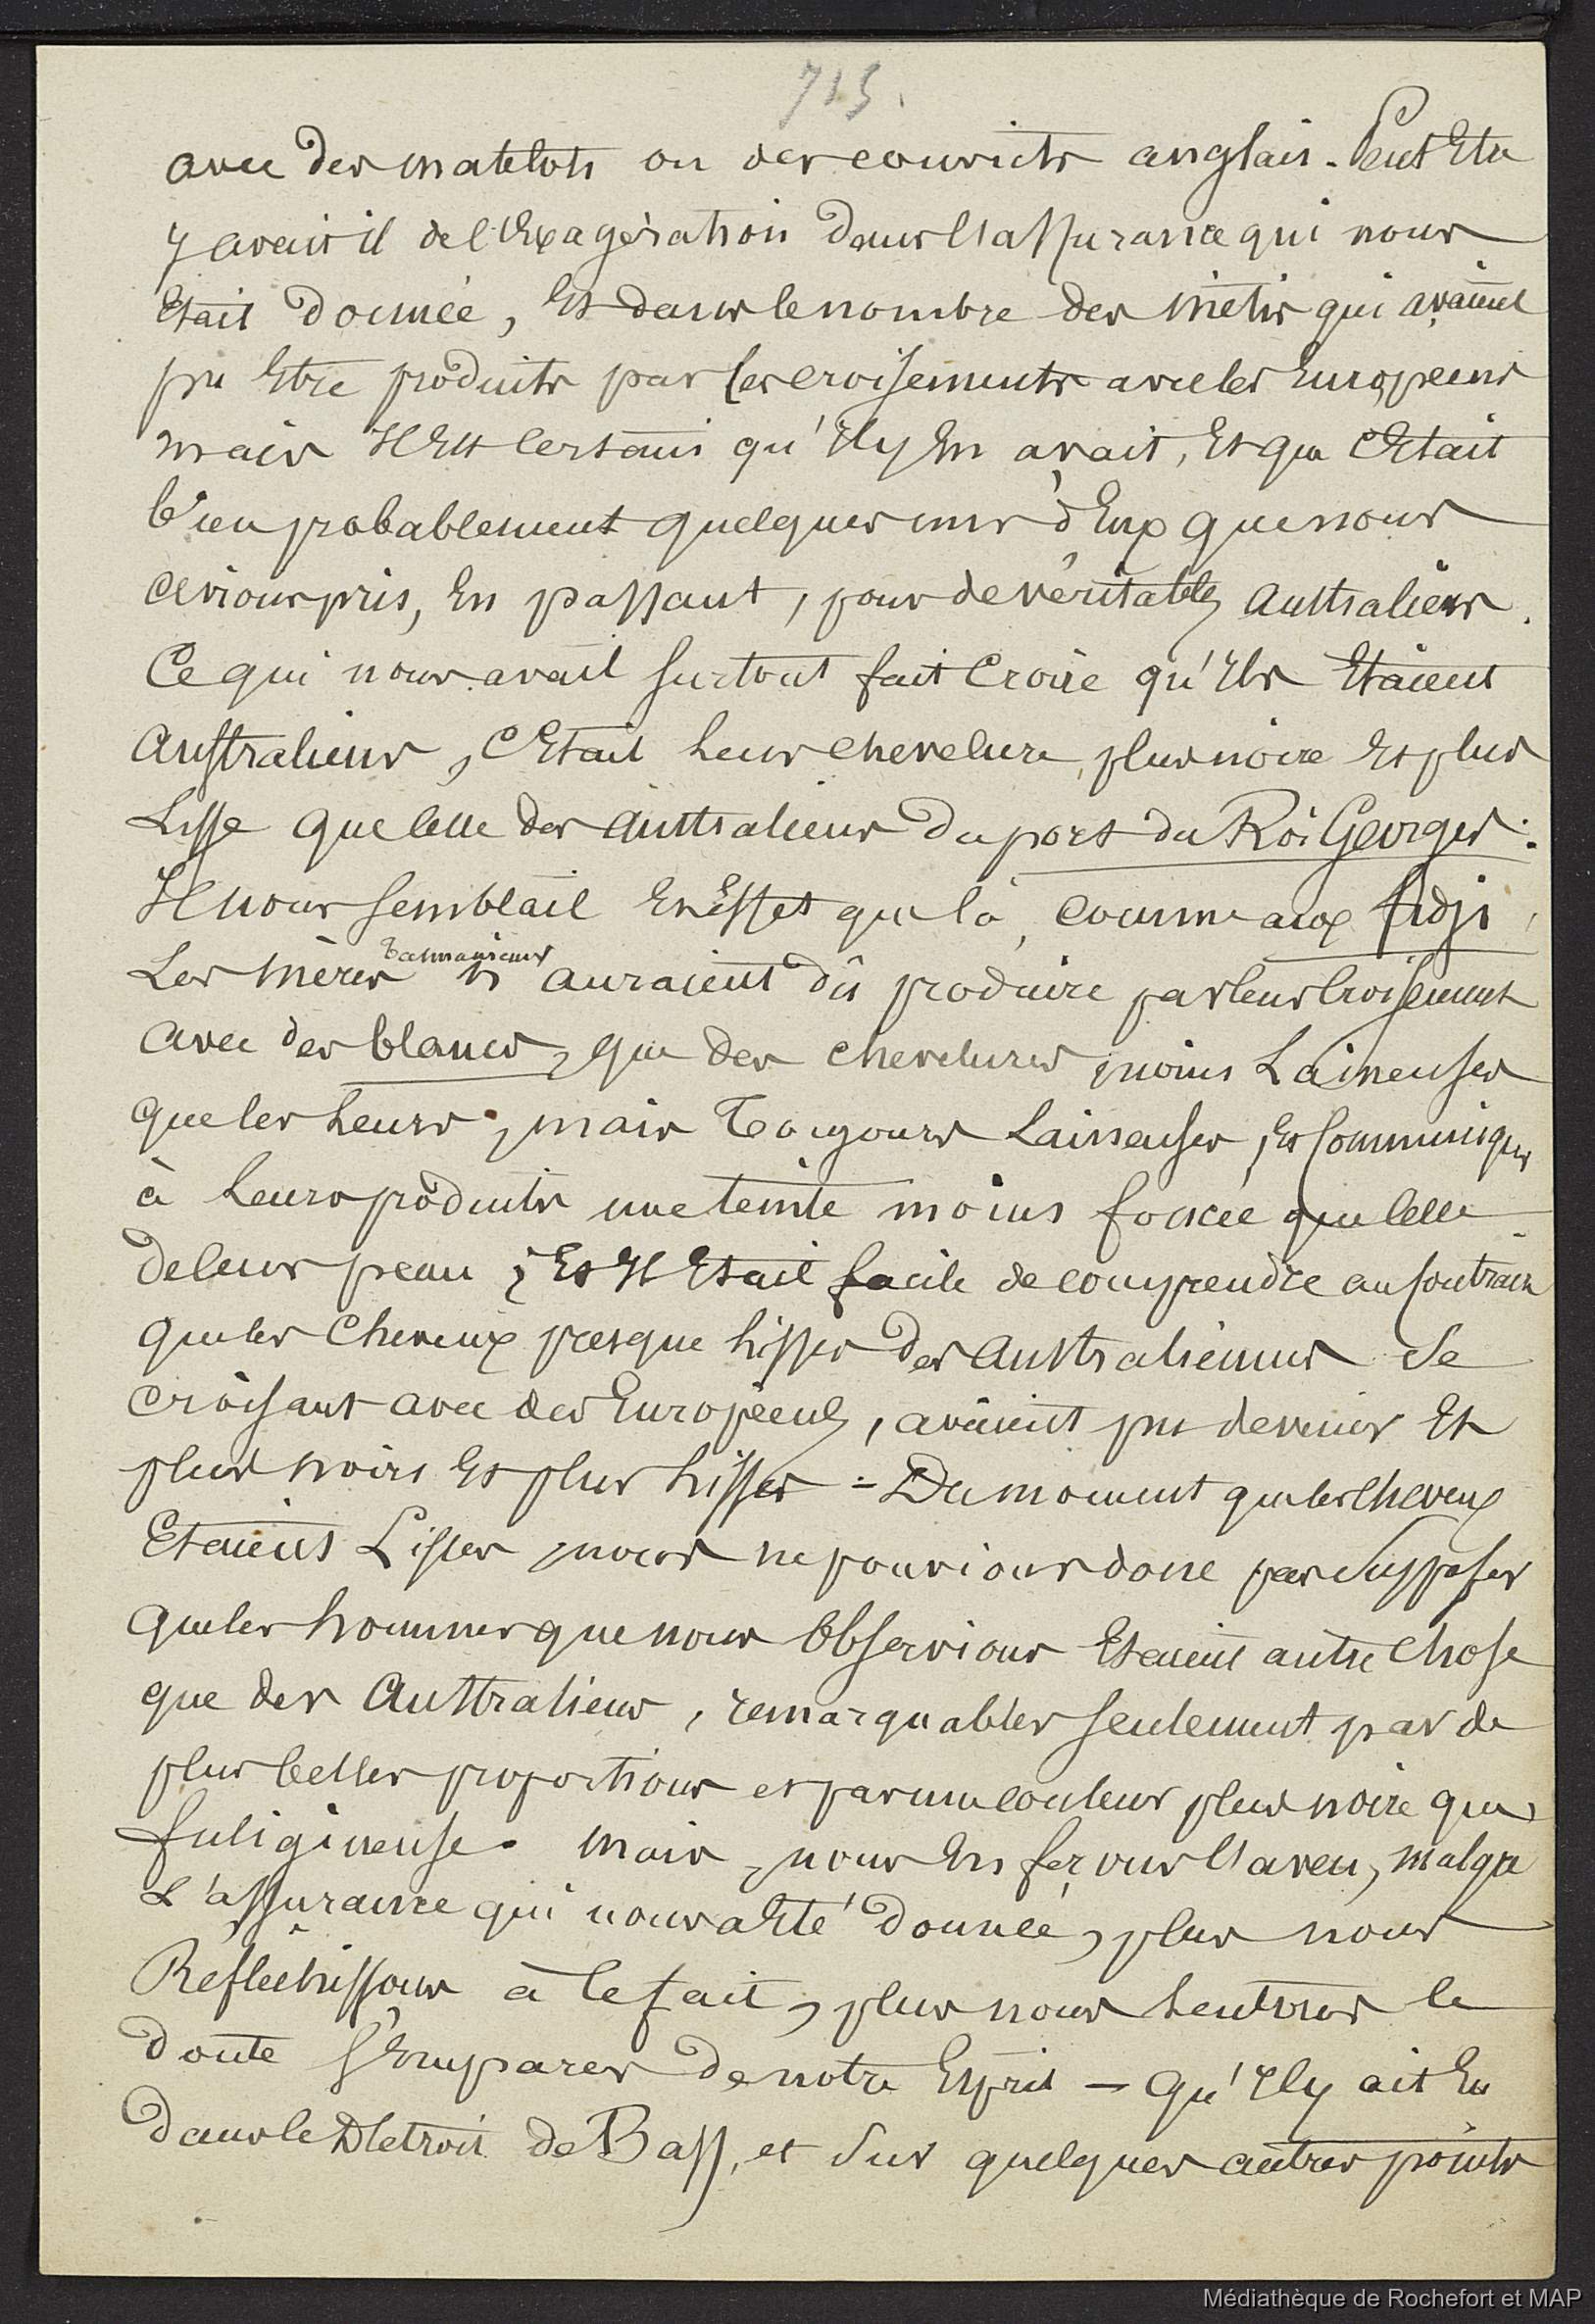 715.
avec des matelots ou des convicts anglais. Peut Etre
y avait il de l'Exagération dans l'assurance qui nous
Etait donnée, Et dans le nombre des métis qui avaient
pu Etre produits par les croisements avec les Européens
mais Il Est Certain qu'Il y En avait, Et que C'Etait
bien probablement quelques uns d'Eux que nous
avions pris, En passant, pour de véritables Australiens.
Ce qui nous avait surtout fait Croire qu'Ils Etaient
Australiens, C'Etait Leur chevelure plus noire Et plus
Lisse que Celle des Australiens du port du Roi Georges :
Il nous semblait En Effet que là, comme aux fidji,
Les mères tasmaniennes n'auraient dû produire par leur Croisement
avec des blancs, que des chevelures moins Laineuses
que les Leurs, mais Toujours Laineuses, Et Communiquer
à Leurs produits une teinte moins foncée que Celle
de leur peau ; Et Il Etait facile de comprendre au Contraire
que les Cheveux presque lisses des Australiennes se
croisant avec des Européens, avaient pu devenir Et
plus noirs Et plus lisses - Du moment que les Cheveux
Etaient Lisses, nous ne pouvions donc pas Supposer
que les hommes que nous Observions Etaient autre Chose
que des Australiens, remarquables seulement par de
plus belles proportions et par une couleur plus noire que
fuligineuse. Mais, nous En ferons l'aveu, malgré
L'assurance qui nous a Eté donnée, plus nous
Réfléchissons à Ce fait, plus nous Sentons le
doute s'Emparer de notre Esprit - Qu'Il y ait Eu
dans le Détroit de Bass, et Sur quelques autres points
Médiathèque de Rochefort et MAP